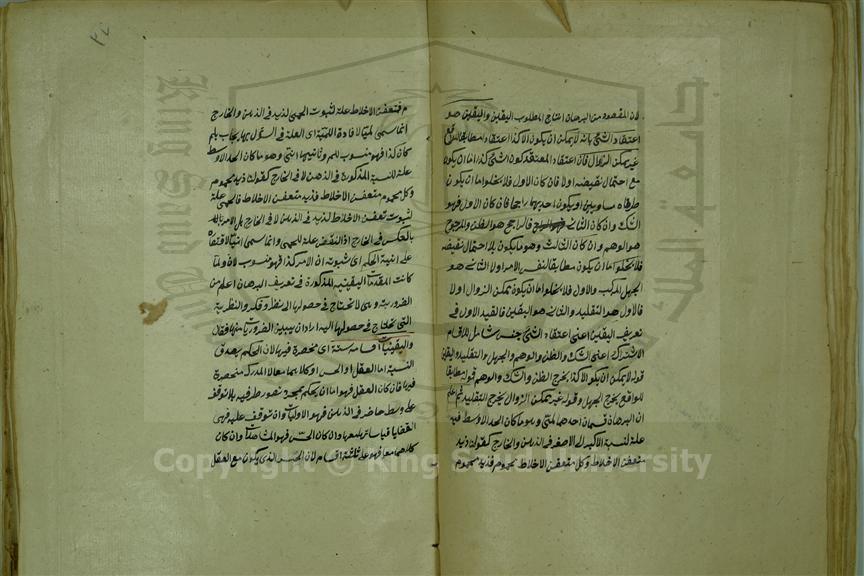 لان المقصود من البرهان انتاج المطلوب اليقين واليقين هو
اعتقاد الشئ بانه لا يمكن ان يكون الا كذا اعتقادا مطابقا للواقع
غير ممكن الزوال فان اعتقاد المعتقد كون الشئ كذا اما ان يكون
مع احتمال نقيضه اولا فان كان الاول فلا يخلوا اما ان يكون
طرفاه متساويين او يكون احديهما راجحا فان كان الاول فهو
الشك وان كان الثاني فالراجح هو الظن والمرجوح
هو الوهم وان كان الثالث وهو ما يكون بلا احتمال نقيضه
فلا يخلوا اما ان يكون مطابقا لنفس الامر اولا والثاني هو
الجهل المركب والاول فلا يخلوا اما ان يكون ممكن الزوال اولا
فالاول هو التقليد والثاني هو اليقين فالقيد الاول في
تعريف اليقين اعني اعتقاد الشئ جنس شامل للاقسام
اعني الشك والظن والوهم والجهل والتقليد واليقين
قوله لا يمكن ان يكون الا كذا يخرج الظن والشك والوهم قوله مطابقا
للواقع يخرج الجهل وقوله غير ممكن الزوال يخرج التقليد ثم اعلم
ان البرهان قسمان احدهما لمي وهو ما كان الحد الاوسط فيه
علة لنسبة الاكبر الى الاصغر في الذهن والخارج كقولنا زيد
متعفن الاخلاط وكل متعفن الاخلاط محموم فزيد محموم
م فتعفن الاخلاط علة لثبوت الحمى لزيد في الذهن والخارج
انما سمى لميا لافادة اللمية اى العلة في السؤال بها يجاب بلم
كان كذا فهو منسوب للم وثانيهما انى وهو ما كان الحد الاوسط
علة للنسبة المذكورة في الذهن لا في الخارج كقولنا زيد محموم
وكل محموم متعفن الاخلاط فزيد متعفن الاخلاط فالحمى علة
لثبوت تعفن الاخلاط لزيد في الذهن لا في الخارج بل الامر
بالعكس في الخارج اذ التعفن علة للحمى وانما سمى انيا لافادته
على انية الحكم اى ثبوته ان الامر كذا فهو منسوب لان ولما
كانت المقدمات اليقينية المذكورة في تعريف البرهان اعلم من
الضرورية وهى لا تحتاج في حصولها الى نظر وفكر والنظرية
التى تحتاج في حصولها اليه اراد ان يبين الضروريات منها فقال
واليقينيات اقسامه ستة اى منحصرة فيها لان الحكم بصدق
النسبة اما العقل او الحس او كلاهما معا لا المدركة منحصرة
فيها فان كان العقل فهو اما ان يحكم بمجرد تصور طرفيه بلا توقف
على وسط حاضر في الذهن فهو الاوليات وان توقف عليه فهى
القضايا قياساتها معها وان كان الحس فهو المشاهدات وان كان
كلاهما معا فهو على ثلثة اقسام لان الحس الذى يكون مع العقل
Copyright © King Saud University
King Saud U